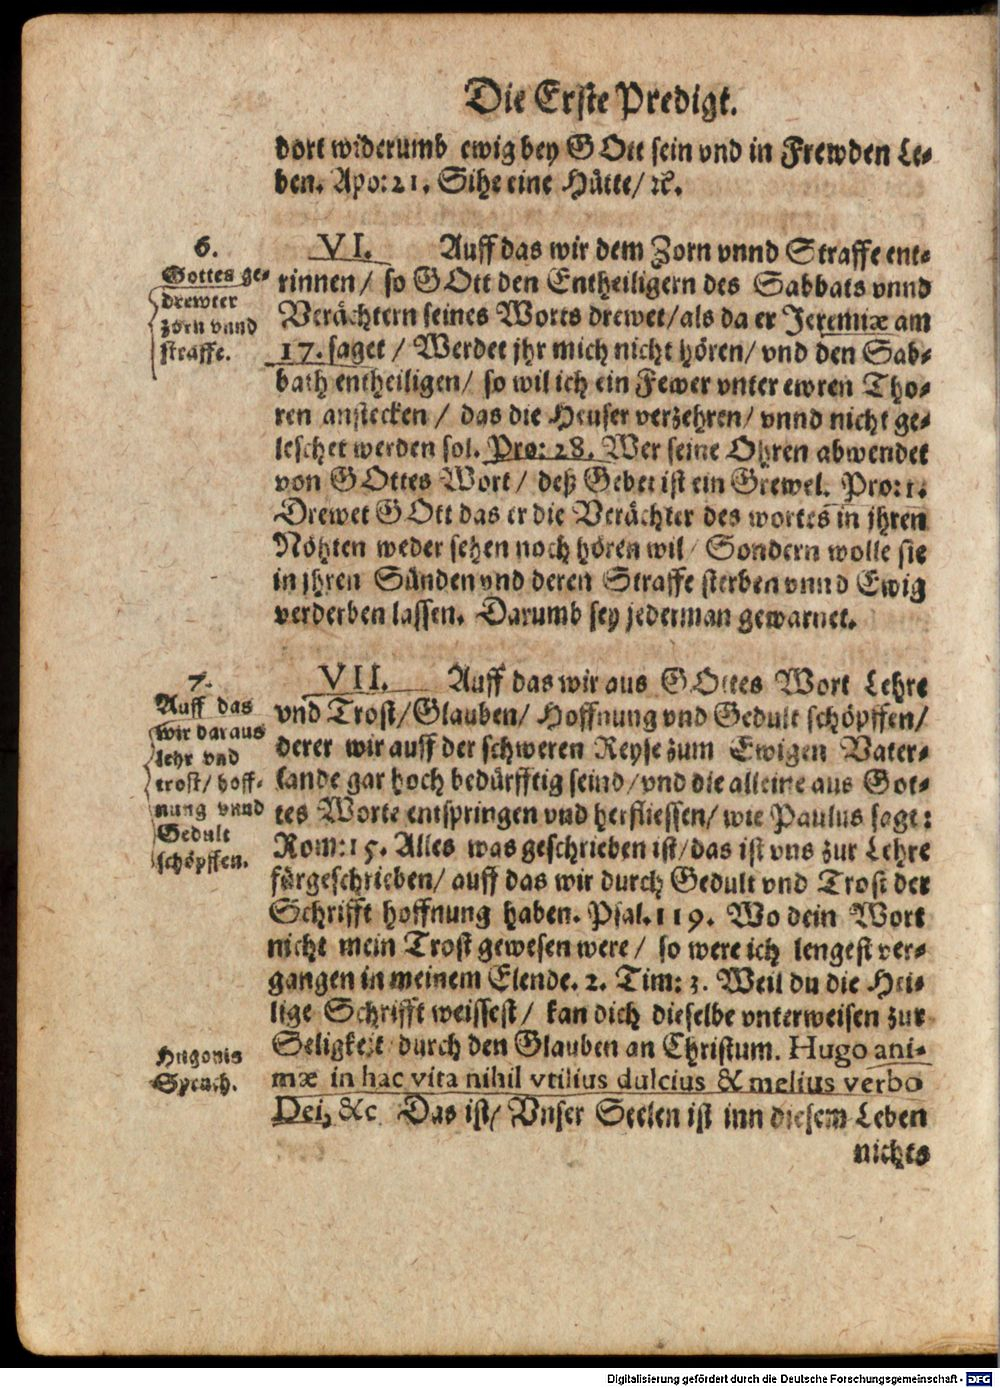 Die Erste Predigt.
dort widerumb ewig bey GOtt sein vnd in Frewden Le-
ben. Apo: 21. Sihe eine Hütte/ ꝛc.
6.
Gottes ge-
drewter
zorn vnnd
straffe.
VI. Auff das wir dem Zorn vnnd Straffe ent-
rinnen/ so GOtt den Entheiligern des Sabbats vnnd
Verächtern seines Worts drewet/ als da er Jeremiæ am
17. saget / Werdet jhr mich nicht hören/ vnd den Sab-
bath entheiligen/ so wil ich ein Fewer vnter ewren Tho-
ren anstecken / das die Heuser verzehren/ vnnd nicht ge-
leschet werden sol. Pro: 28. Wer seine Ohren abwendet
von GOttes Wort / deß Gebet ist ein Grewel. Pro: 1.
Drewet GOtt das er die Verächter des wortes in jhren
Nöhten weder sehen noch hören wil/ Sondern wolle sie
in jhren Sünden vnd deren Straffe sterben vnnd Ewig
verderben lassen. Darumb sey jederman gewarnet.
7.
Auff das
wir daraus
lehr vnd
trost/ hoff-
nung vnnd
Gedult
schöpffen.
VII. Auff das wir aus GOttes Wort Lehre
vnd Trost/ Glauben/ Hoffnung vnd Gedult schöpffen/
derer wir auff der schweren Reyse zum Ewigen Vater-
lande gar hoch bedürfftig seind/ vnd die alleine aus Got-
tes Worte entspringen vnd herfliessen/ wie Paulus sagt:
Rom: 15. Alles was geschrieben ist/ das ist vns zur Lehre
fürgeschrieben/ auff das wir durch Gedult vnd Trost der
Schrifft hoffnung haben. Psal. 119. Wo dein Wort
nicht mein Trost gewesen were / so were ich lengest ver-
gangen in meinem Elende. 2. Tim: 3. Weil du die Hei-
lige Schrifft weissest/ kan dich dieselbe vnterweisen zur
Seligkeit durch den Glauben an Christum. Hugo ani-
mæ in hac vita nihil vtilius dulcius & melius verbo
Dei, &c Das ist/ Vnser Seelen ist inn diesem Leben
Hugonis
Spruch.
nichts
Digitalisierung gefördert durch die Deutsche Forschungsgemeinschaft - DFG